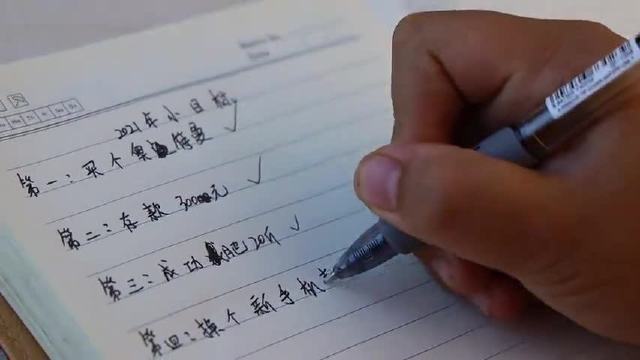 2021年小目标
第一：买个奥特曼✓
第二：存款30000元✓
第三：成功减肥20斤✓
第四：换个新手机